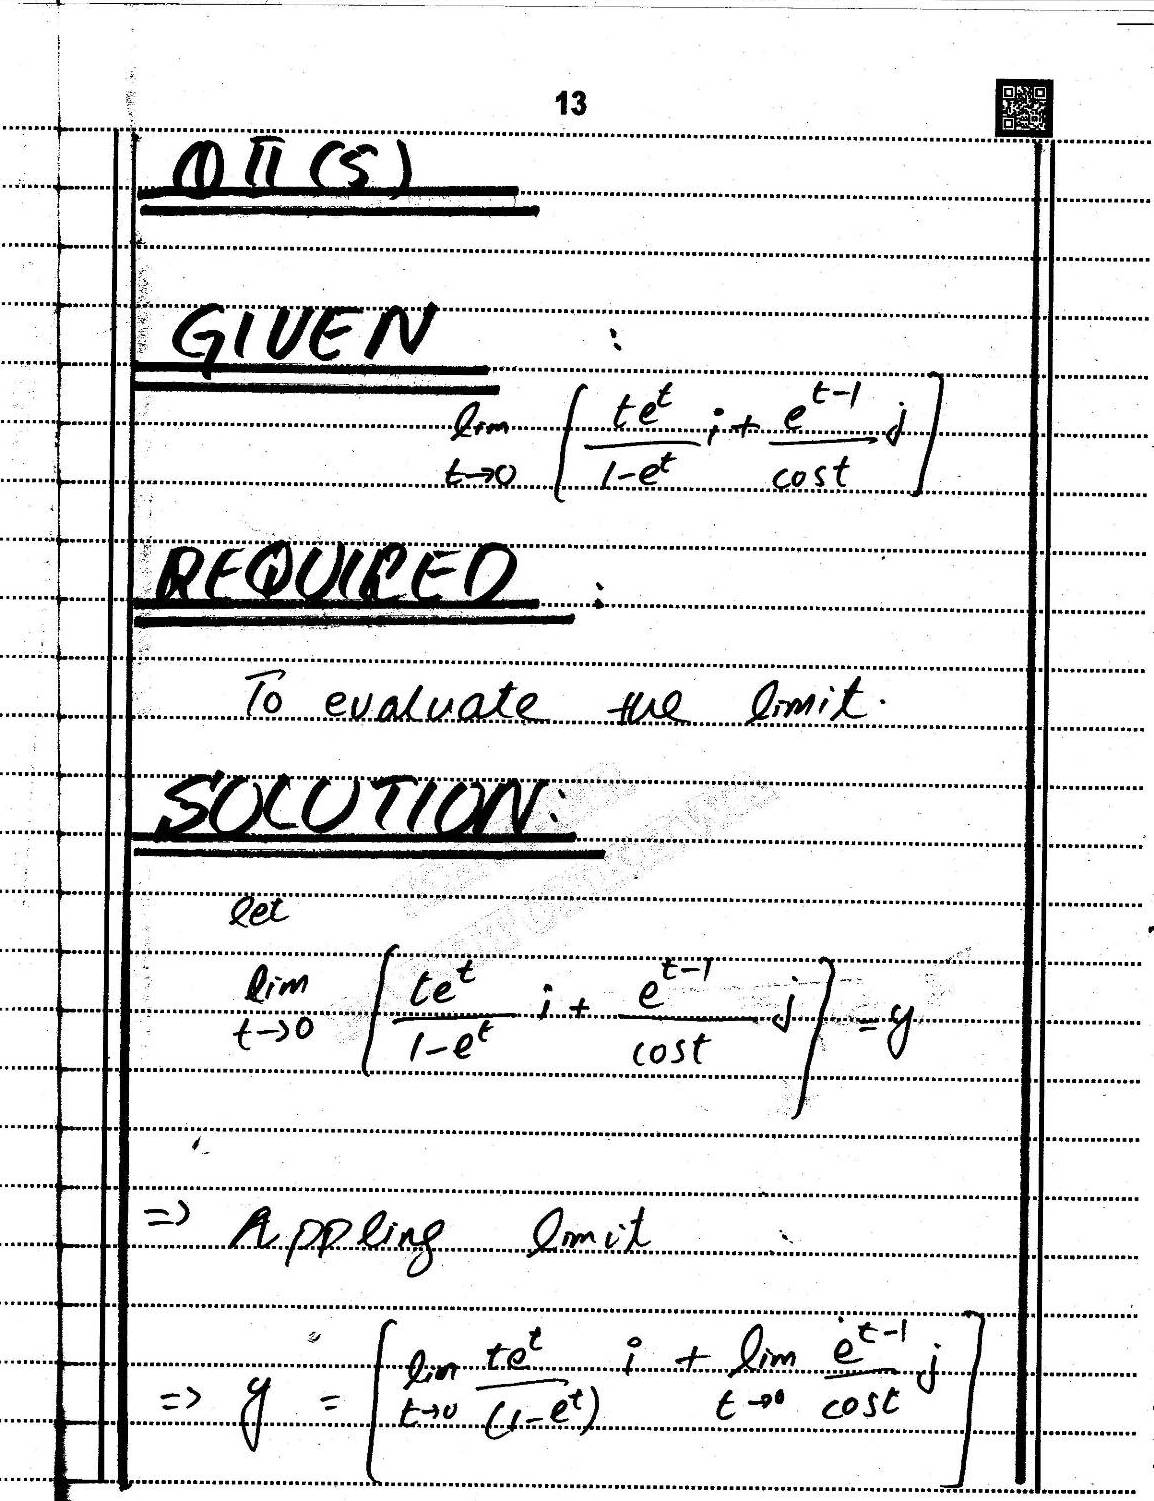 13
Q II (S)
GIVEN :
lim t→0 [ te^t / 1-e^t i + e^t-1 / cost j ]
REQUIRED :
To evaluate the limit.
SOLUTION:
let
lim t→0 [ te^t / 1-e^t i + e^t-1 / cost j ] = y
=> Appling limit
=> y = [ lim t→0 te^t / (1-e^t) i + lim t→0 e^t-1 / cost j ]